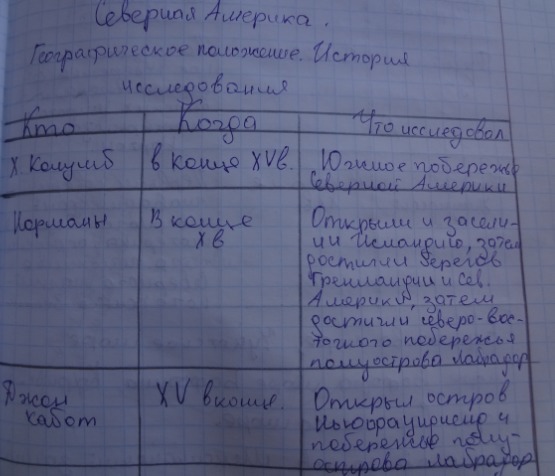 Северная Америка.
Географическое положение. История
исследования
Кто Когда Что исследовал
Х. Колумб в конце XVв. Южное побережье
Северной Америки
Норманы В конце
Xв
Открыли и засели-
ли Исландию, затем
достигли берегов
Гренландии и Сев.
Америки, затем
достигли северо-вос-
точного побережья
полуострова Лабрадор
Джон
Кабот
XV в конце.
Открыл остров
Ньюфаундленд и
побережье полу-
острова Лабрадор